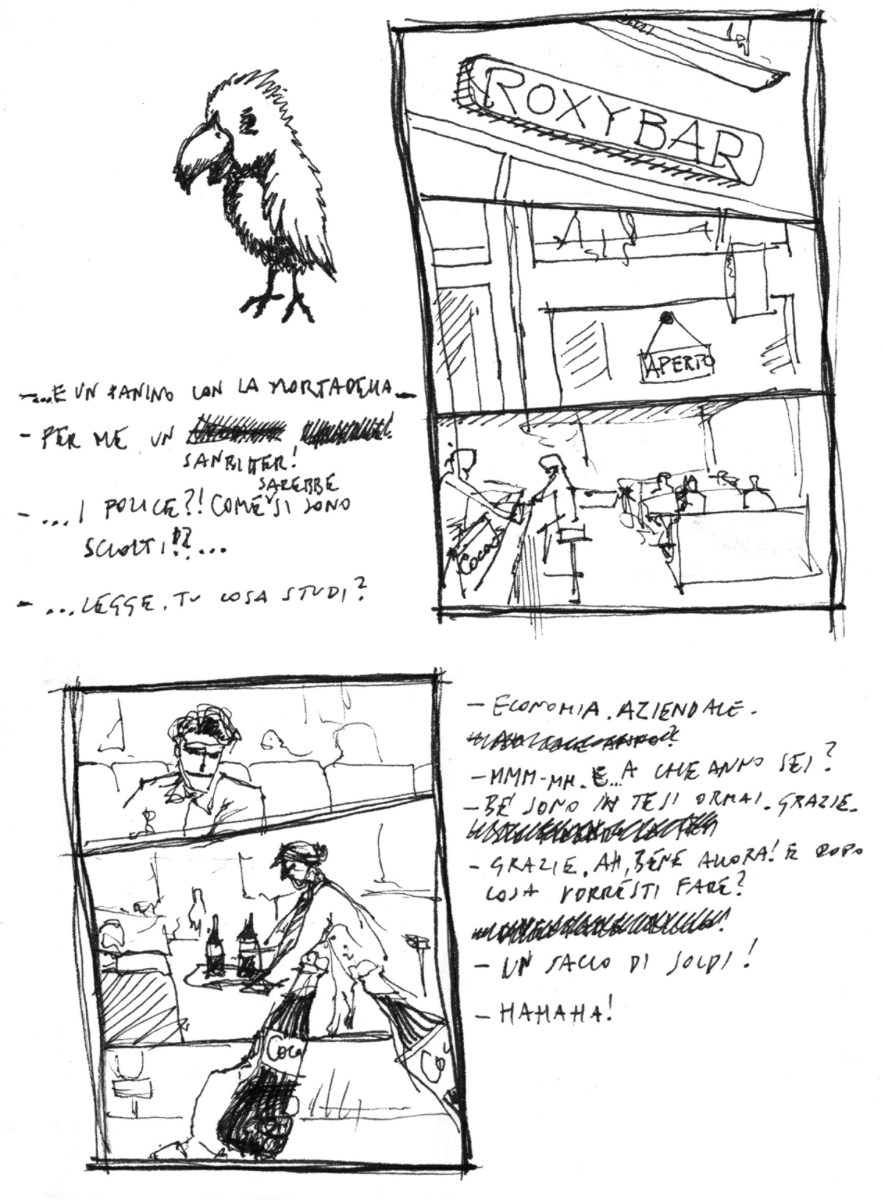 ROXY BAR
APERTO
COCA
-...E UN PANINO CON LA MORTADELLA-
- PER ME UN
SANBITTER!
SAREBBE
- ...I POLICE?! COME SI SONO
SCIOLTI!?...
- ...LEGGE. TU COSA STUDI?
- ECONOMIA. AZIENDALE.
- MMM-MH. E... A CHE ANNO SEI?
- BÉ SONO IN TESI ORMAI. GRAZIE.
- GRAZIE. AH, BENE ALLORA! E DOPO
COSA VORRESTI FARE?
- UN SACCO DI SOLDI!
- HAHAHA!
COCA
CO